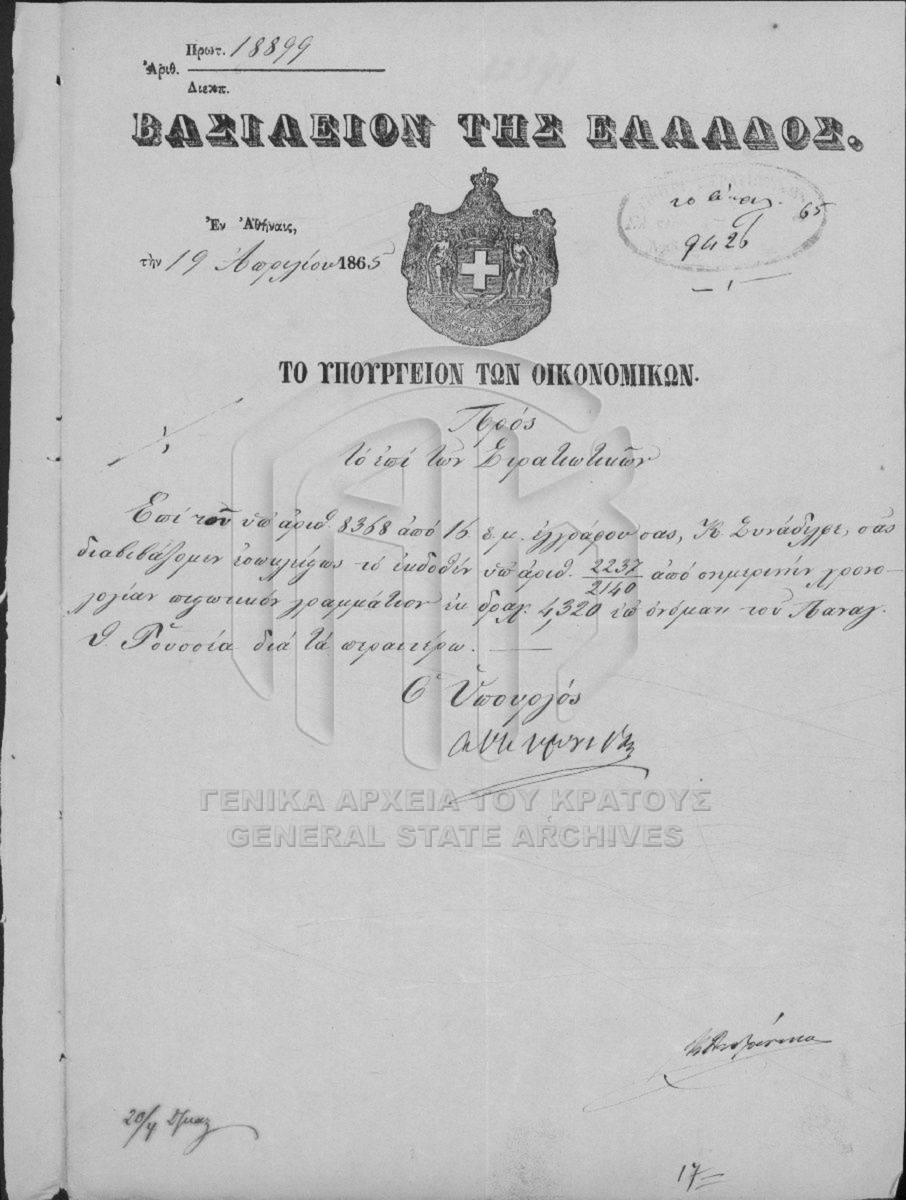 Πρωτ. 18899
Ἀριθ.
Διεκπ.
ΒΑΣΙΛΕΙΟΝ ΤΗΣ ΕΛΛΑΔΟΣ.
Ἐν Ἀθήναις,
τὴν 19 Ἀπριλίου 1865
20 Ἀπρ. 65
9426
ΤΟ ΥΠΟΥΡΓΕΙΟΝ ΤΩΝ ΟΙΚΟΝΟΜΙΚΩΝ.
Πρός
τό ἐπί τῶν Στρατιωτικῶν
Επί τοῦ ὑπ' ἀριθ. 8368 ἀπό 16 ἐ.μ. ἐγγράφου σας, Κ. Συνάδελφε, σᾶς
διαβιβάζομεν ἐσωκλείστως τό ἐκδοθέν ὑπ' ἀριθ. 2237/2140 ἀπό σημερινήν χρονο-
λογίαν πιστωτικόν γραμμάτιον ἐκ δραχ. 4,320 ἐπ' ὀνόματι τοῦ Παναγ.
Ρουσσία διά τά περαιτέρω.
Ὁ Ὑπουργός
ΓΕΝΙΚΑ ΑΡΧΕΙΑ ΤΟΥ ΚΡΑΤΟΥΣ
GENERAL STATE ARCHIVES
20/4
17